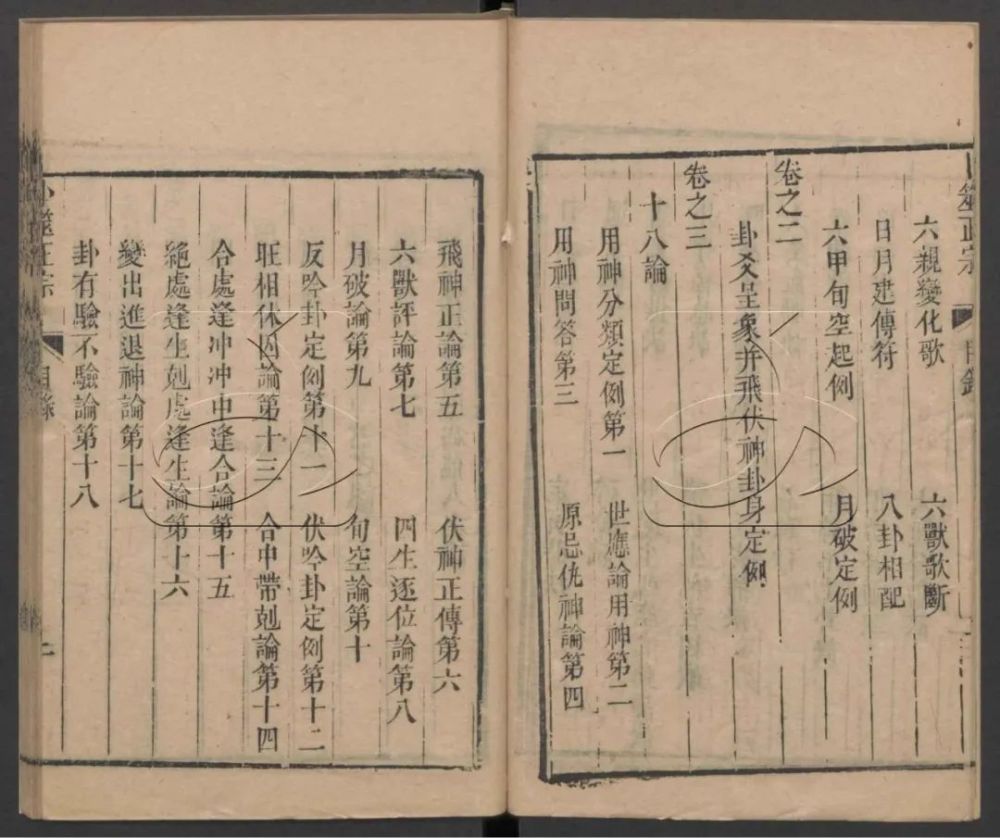 卜筮正宗 目錄
六親變化歌 六獸歌斷
日月建傳符 八卦相配
六甲旬空起例 月破定例
卷之二
卦爻呈象并飛伏神卦身定例
卷之三
十八論
用神分類定例第一 世應論用神第二
用神問答第三 原忌仇神論第四
飛神正論第五 伏神正傳第六
六獸評論第七 四生逐位論第八
月破論第九 旬空論第十
反吟卦定例第十一 伏吟卦定例第十二
旺相休囚論第十三 合中帶剋論第十四
合處逢冲冲中逢合論第十五
絕處逢生剋處逢生論第十六
變出進退神論第十七
卦有驗不驗論第十八
卜筮正宗 目錄 二